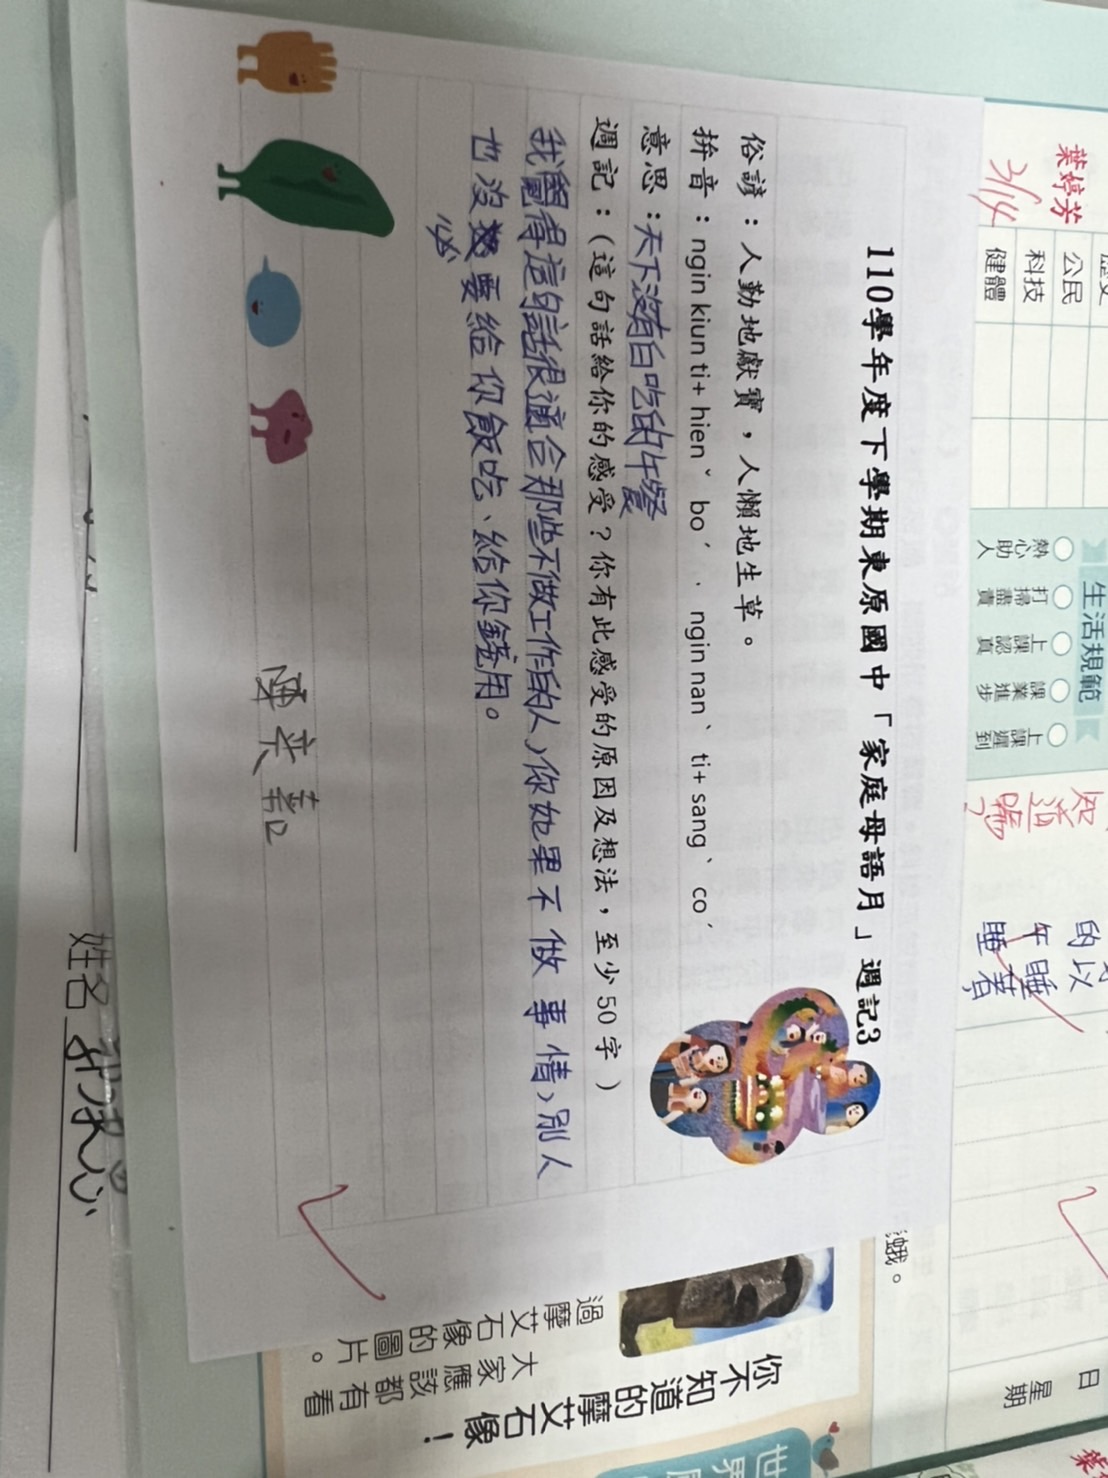 110學年度下學期東原國中「家庭母語月」週記3
俗諺：人勤地獻寶，人懶地生草。
拼音：ngin kiun ti+ hien ˇ bo ˊ ﹒ ngin nan ˋ ti+ sang ˋ co ˊ
意思：天下沒有白吃的午餐
週記：(這句話給你的感受？你有此感受的原因及想法，至少50字)
我覺得這句話很適合那些不做工作的人,你如果不做事情,別人
也沒必要給你飯吃、給你錢用。
葉婷芳
3/14
公民
科技
健體
生活規範
熱心助人
打掃盡責
上課認真
課業進步
上課遲到
知道嗎
的以
年睡著
睡
日
星期
你不知道的摩艾石像！
大家應該都有看
過摩艾石像的圖片。
世界
姓名